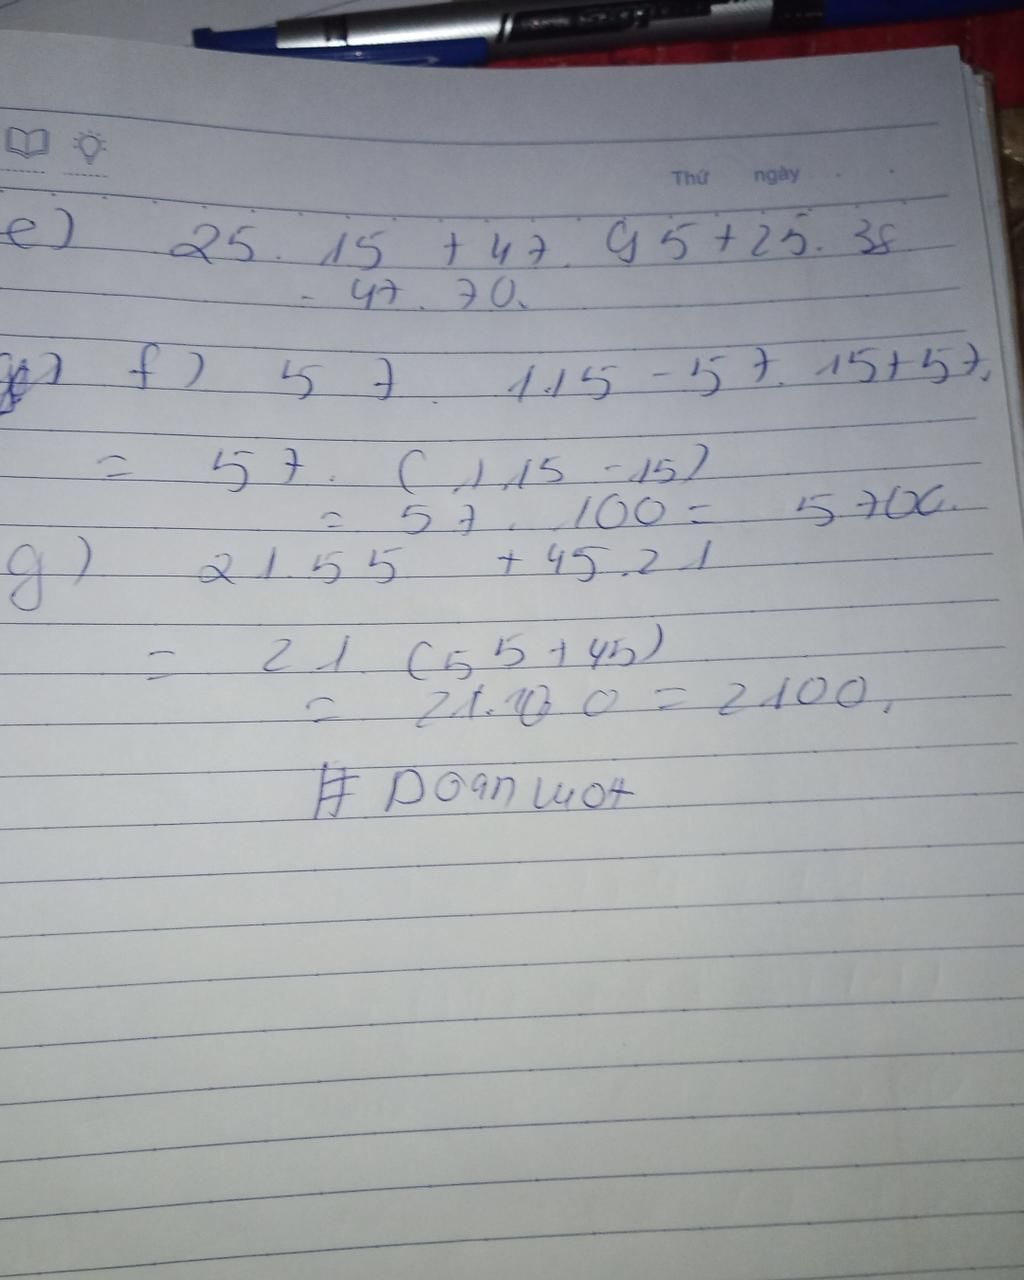 Thứ ngày
e) 25. 15 + 47. 95 + 25. 38
- 47. 70.
f) 57. 115 - 57. 15 + 57.
= 57. (115 - 15)
= 57. 100 = 5700.
g) 21.55 + 45.21
= 21 (55 + 45)
= 21.100 = 2100.
# Doan